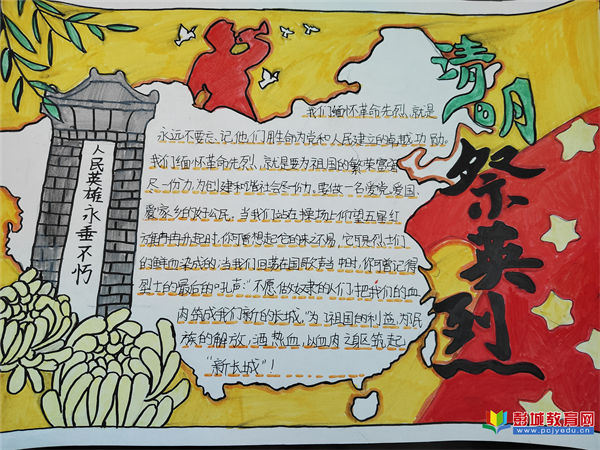 清明
祭英烈
人民英雄永垂不朽
我们缅怀革命先烈,就是
永远不要忘记他们用生命为党和人民建立的卓越功勋。
我们缅怀革命先烈,就是要为祖国的繁荣富强
尽一份力,为创建和谐社会尽份力。要做一名爱党、爱国、
爱家乡的好公民。当我们站在操场上仰望五星红
旗冉冉升起时,你可曾想起它的来之不易,它可是烈士们
的鲜血染成的;当我们回荡在国歌声当中时,你可曾记得
烈士的最后的"吼声:"不愿做奴隶的人们!把我们的血
肉筑成我们新的长城。"为了祖国的利益,为民
族的解放,洒热血,以血肉之躯筑起
"新长城"!
彭城教育网
www.pcjyedu.cn